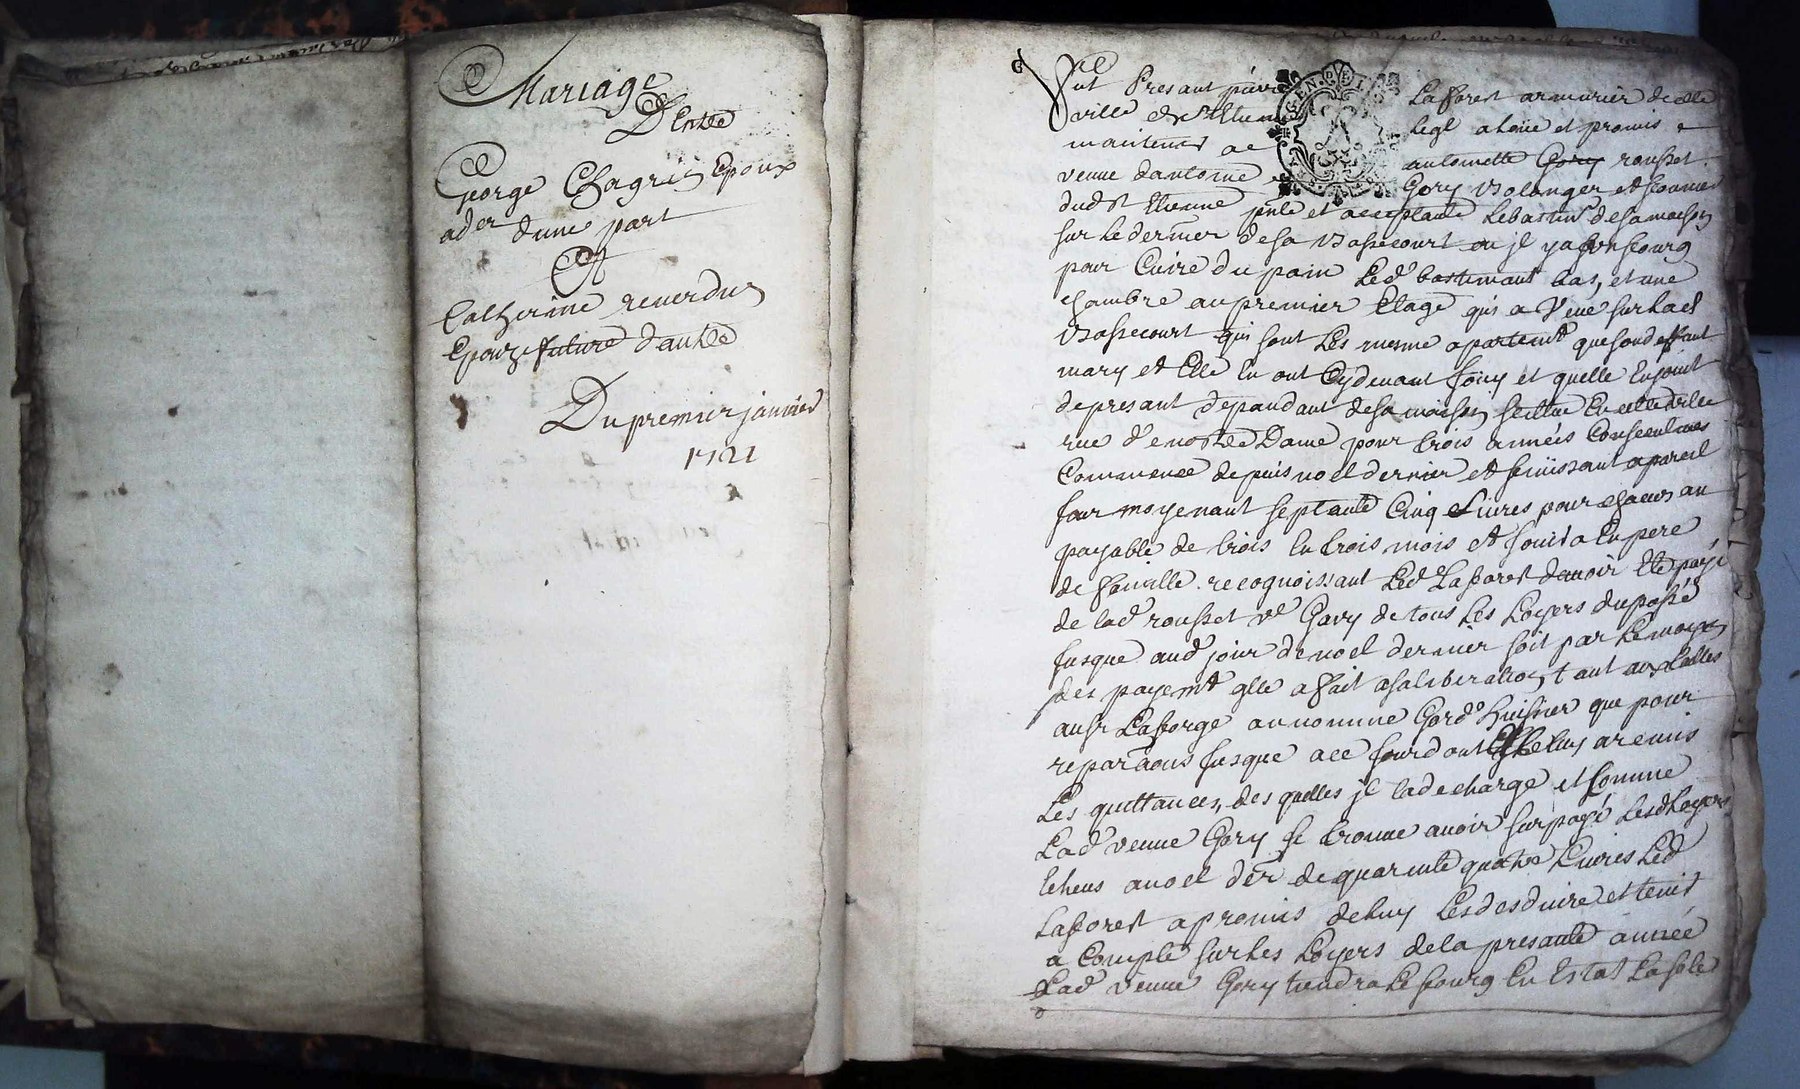 Mariage
D'Entre
George Chagrin Epoux
ad er dune part
Et
Catherine reuerdun
Epouze future d'autre
Du premier januier
1721
Fut Presant pierre Laforest armurier de cette
ville de St Etienne leql a loüé et promis
maitenir a antoinette Gory rousset
veuue dantoine Gory Bolanger et fournier
dud St Etienne pnte et acceptante Le bastimt de sa maison
sur le dernier de sa Bassecourt ou jl y a son fourg
pour Cuire du pain Led bastimant bas, et une
chambre au premier Etage qui a Veue sur lad
Bassecourt qui sont Les mesme apartemt que son deffunt
mary et Elle En ont Cydeuant joüy et quelle En jouit
de presant depandant de sa maison scittue En cette ville
rue de nostre Dame pour trois années Consecutiues
Commencé depuis noel dernier et finissant a pareil
jour moyenant septante Cinq Liures pour chacun an
payable de trois En trois mois et jouira En pere
de famille recognoissant Led Laforest d'auoir Eté payé
de lad rousset ve Gory de tous Les Loyers du passé
jusque aud jour de noel dernier soit par Le moyen
des payemt qlle a fait a sa liberation tant aux
au sr Laforge au nomme Gord huissier que pour
reparaons jusque a ce jourd ont Elle luy a remis
Les quittances, des quelles jl la decharge et Comme
Lad veuue Gory se trouue auoir surpayé Lesd Loyers
Echeus a noel der de quarente quatre Liures Led
Laforest a promis de luy Les desduire et tenir
a Compte sur les Loyers de la presante année
Lad veuue Gory tiendra Le fourg En Estat La sole